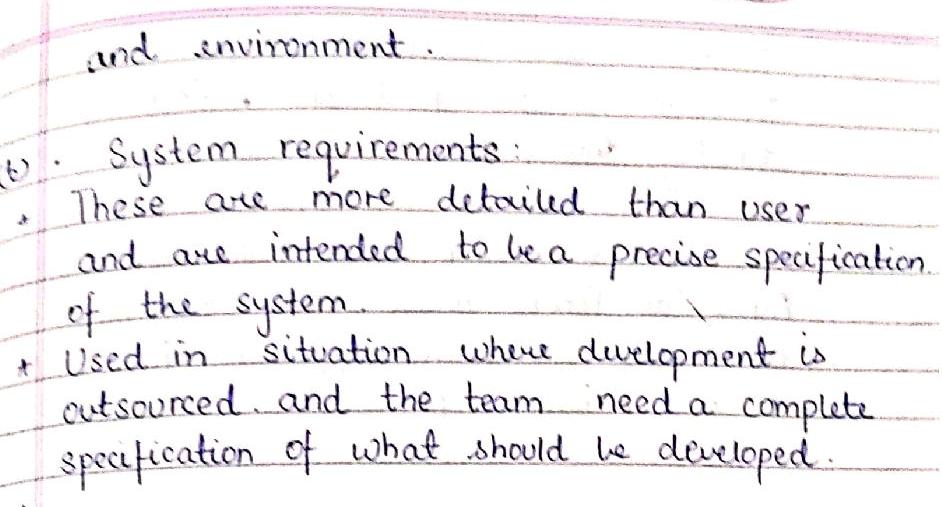 and environment.
(t). System requirements:
* These are more detailed than user
and are intended to be a precise specification.
of the system.
* Used in situation where development is
outsourced. and the team need a complete
specification of what should be developed.